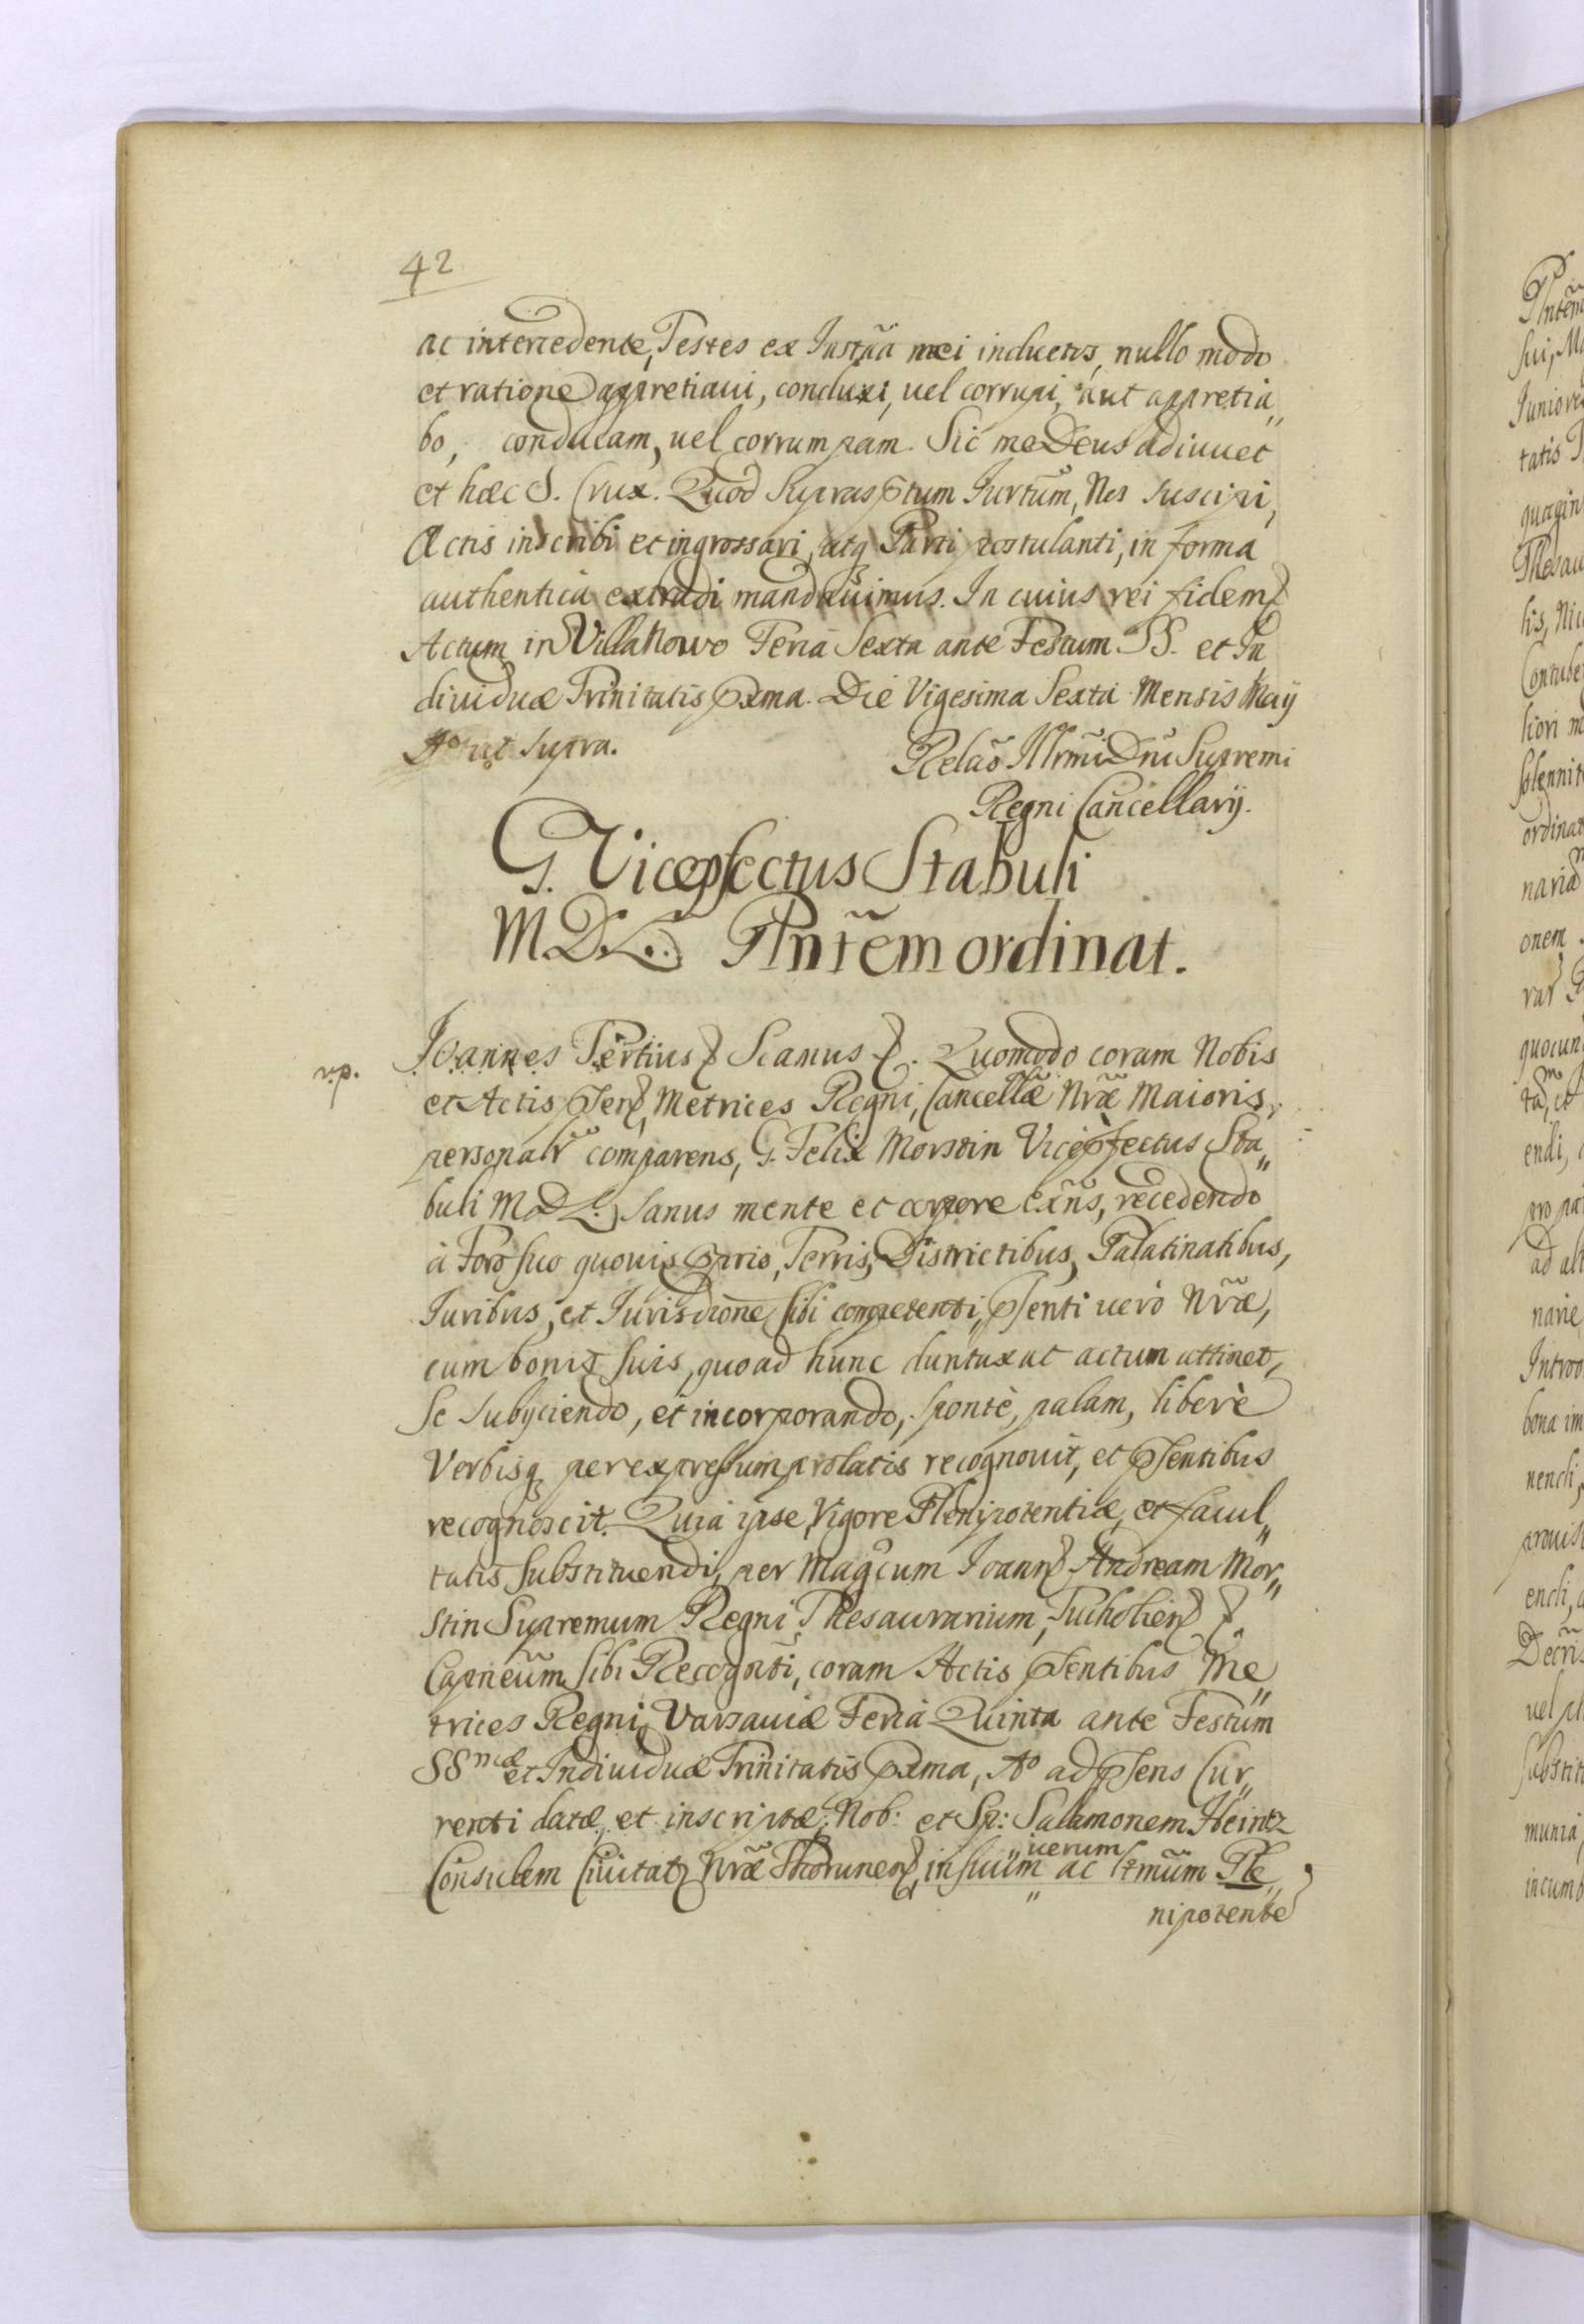 42
ac intercedente, Testes ex Instña mei inductos, nullo modo
et ratione appretiaui, conduxi, uel corrupi, aut appretia„
bo, conducam, uel corrumpam. Sic me Deus adiuuet
et hæc S. Crux. Quod suprasptum Iurtum, Nos suscipi,
Actis inscribi et ingrossari, atq Parti postulanti, in forma
authentica extradi mandauimus. In cuius rei fidem
Actum in Villa Nowo Feria Sexta ante Festum SS. et In
diuiduæ Trinitatis pxma. Die Vigesima Sexta Mensis Maij
Aº ut supra.
Relaõ Illrmi Dni Supremi
Regni Cancellarij.
G. Vicepfectus Stabuli
M. D. L. Plntẽm ordinat.
v.p.
Joannes Tertius Scamus. Quomodo coram Nobis
et Actis psen, Metrices Regni, Cancellæ Nræ Maioris,
personalr comparens, G. Felix Morstin Vicepfectus Sta„
buli M. D. L. sanus mente et corpore exñs, recedendo
à Foro suo quouis pprio, Terris, Districtibus, Palatinatibus,
Iuribus, et Iurisdione sibi competenti, psenti uerò Nræ,
cum bonis suis, quoad hunc duntaxat actum attinet,
se subijciendo, et incorporando, spontè, palam, liberè
Verbisq per expressum prolatis recognouit, et psentibus
recognoscit. Quia ipse, Vigore Plenipotentiæ, et facul„
tatis substituendi, per Magcum Ioann Andream Mor„
stin Supremum Regni Thesaurarium, Tucholien
Capneum sibi Recognti, coram Actis psentibus Me„
trices Regni, Varsauiæ Feria Quinta ante Festum
SSmæ et Indiuiduæ Trinitatis pxma, Aº ad psens Cur„
renti datæ, et inscriptæ, Nob: et Sp: Salamonem Heintz
uerum
Consulem Ciuitat Nræ Thorunen, in suum ac ltmum Ple„
nipotente